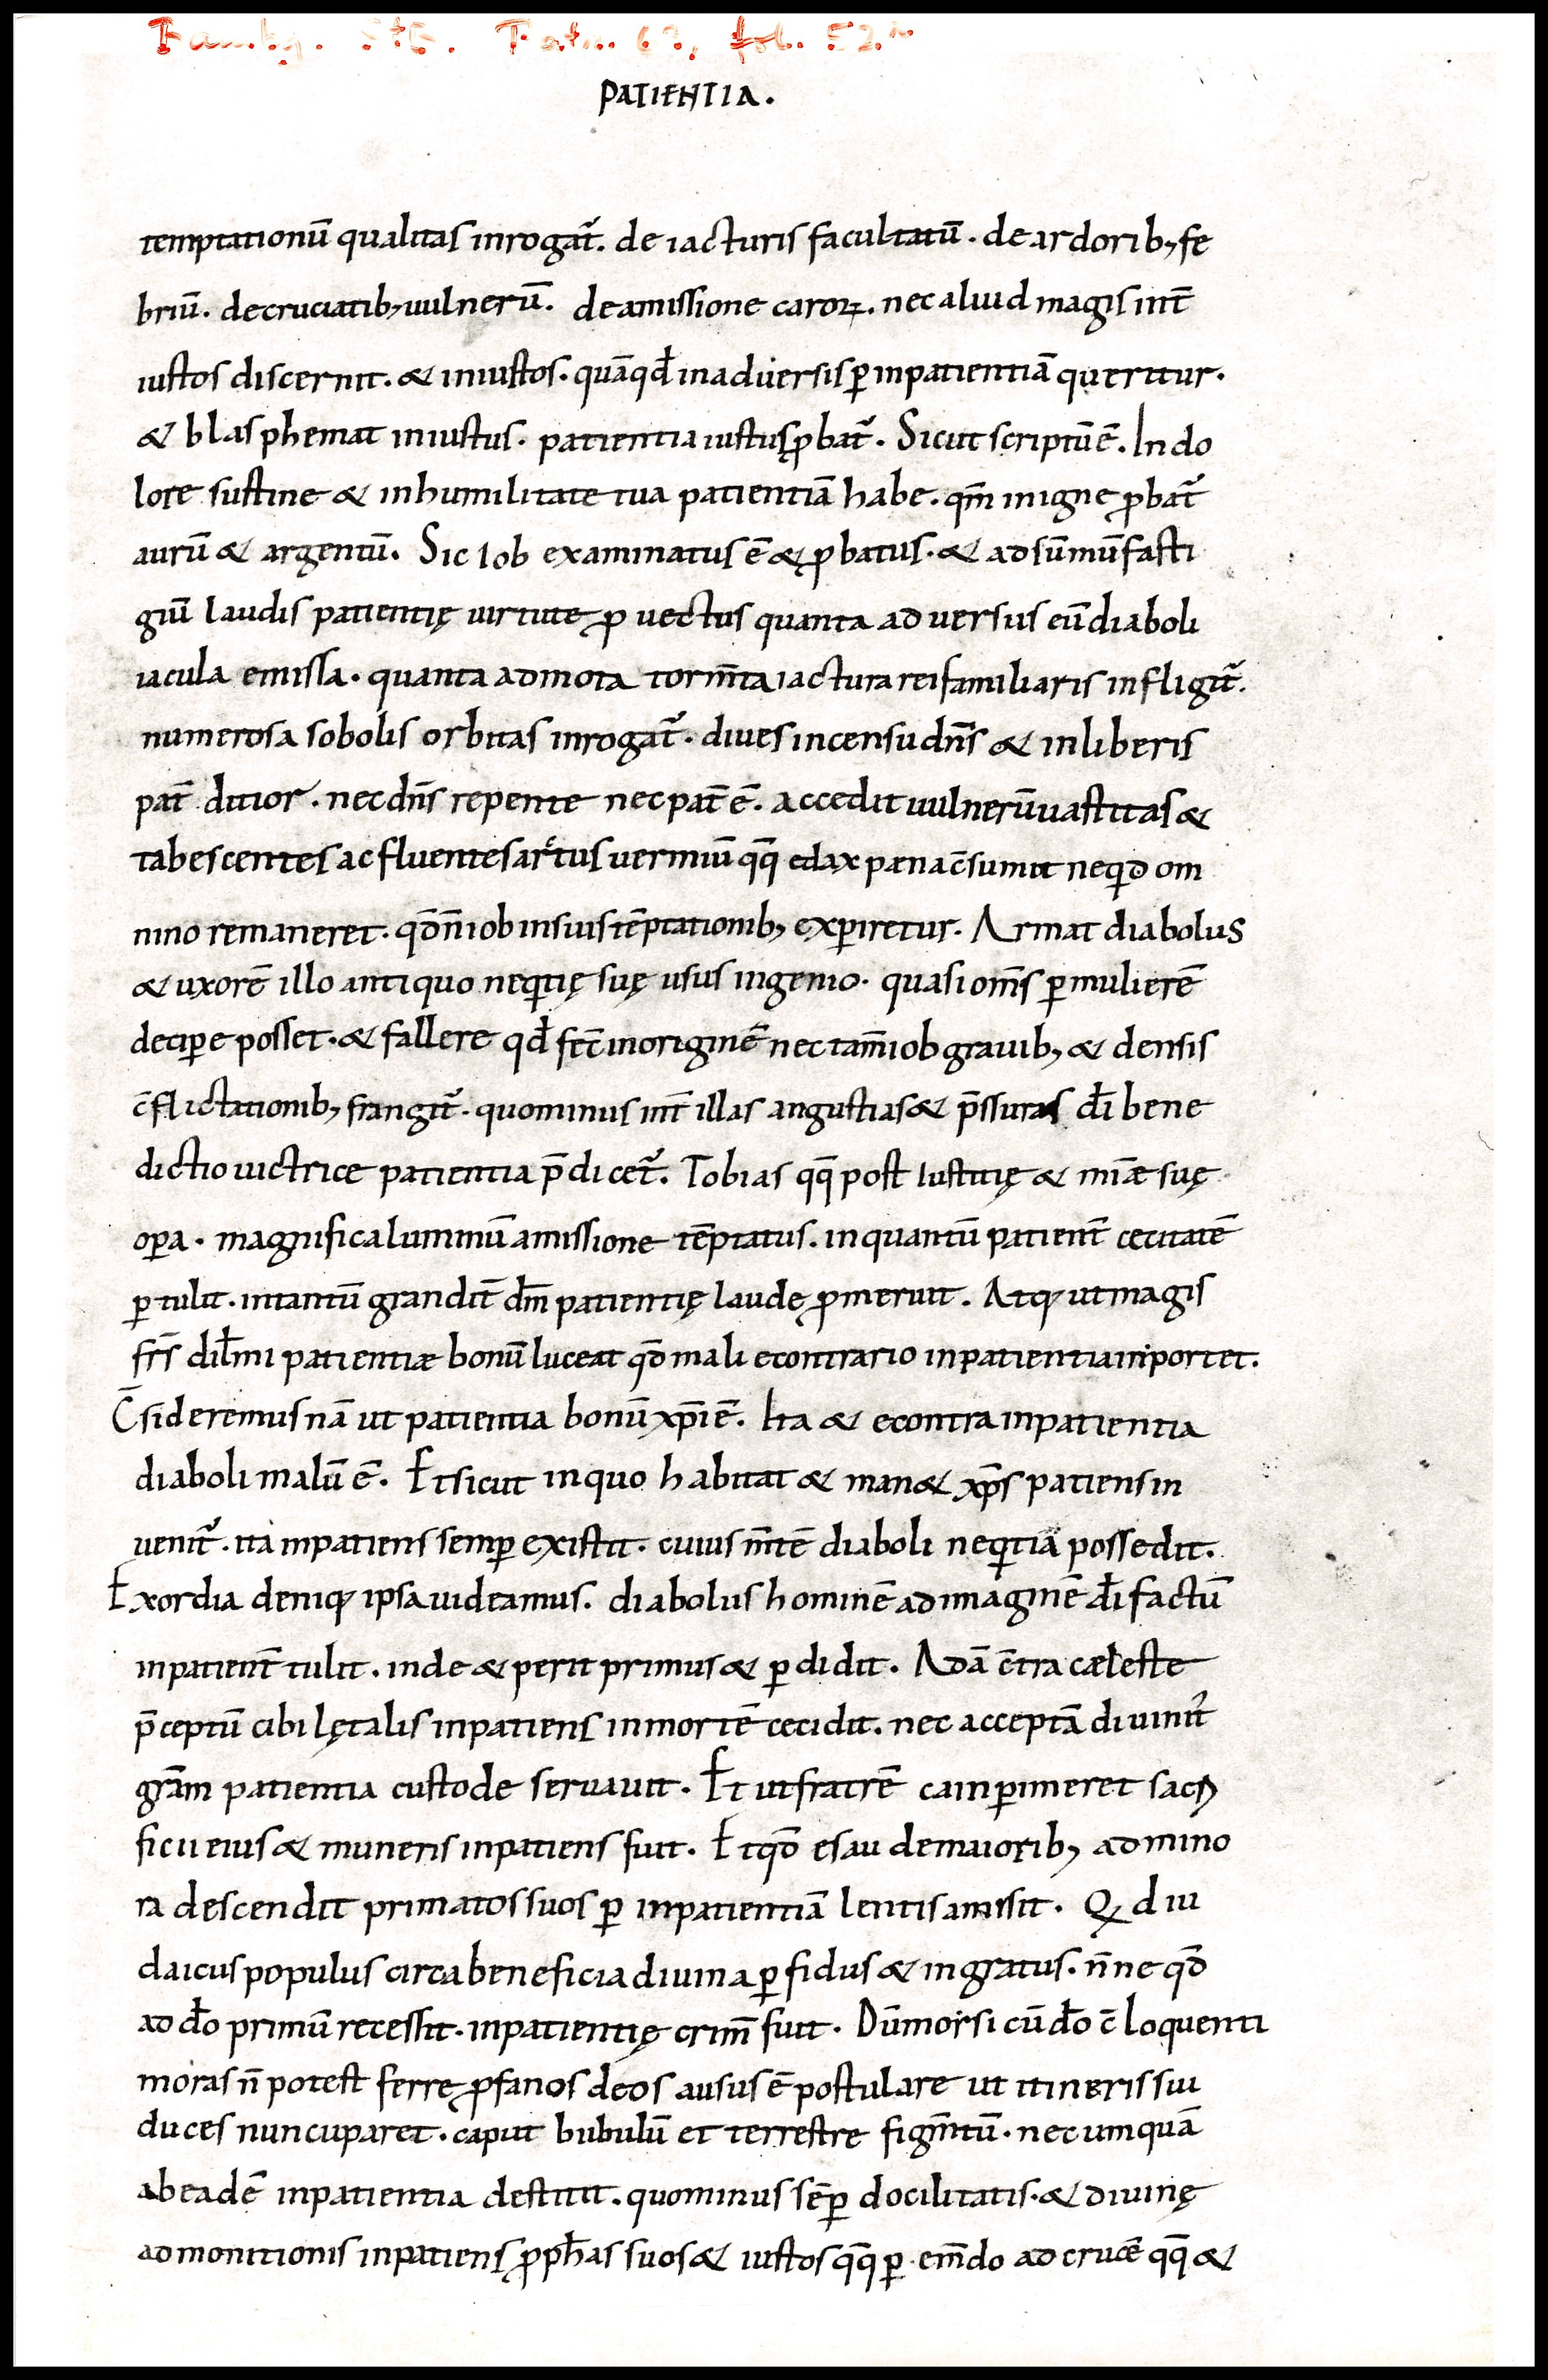 Bambg. StB. Patr. 63, fol. 52r
PATIENTIA.
temptationū qualitas inrogat᷑. de iacturis facultatū. de ardorib; fe
briū. decruciatib; uulnerū. deamissione caroꝝ. nec aluid magis int̄
iustos discernit. & iniustos. quāqđ inaduersis ꝑ inpatientiā queritur.
& blasphemat iniustus. patientia iustus ꝓbat᷑. Sicut scriptū ē. In do
lore sustine & inhumilitate tua patientiā habe. qm̄ inigne ꝓbat᷑
aurū & argentū. Sic iob examinatus ē & ꝓbatus. & adsūmū fasti
giū laudis patientię uirtute ꝓuectus quanta aduersus eū diaboli
iacula emissa. quanta admota torm̄ta iactura rei familiaris infligit᷑.
numerosa sobolis orbitas inrogat᷑. diues incensu dn̄s & inliberis
pat̄ ditior. nec dn̄s repente nec pat̄ ē. accedit uulnerū uastitas &
tabescentes ac fluentes artus uermiū qq̄ edax pæna c̄sumit neqd om
nino remaneret. qd̄ n̄ iob insuis tēptationib; exꝑiretur. Armat diabolus
& uxorē illo antiquo neqtię suę usus ingenio. quasi om̄s ꝑ mulierē
deciꝑe posset. & fallere qđ fec̄ inoriginē nec tam̄ iob grauib; & densis
c̄flictationib; frangit᷑. quominus int̄ illas angustias & p̄ssuras dī bene
dictio uictrice patientia p̄dicet᷑. Tobias qq̄ post iustitię & miǣ suę
oꝑa. magnifica luminū amissione tēptatus. inquantū patient̄ cecitatē
ꝑtulit. intantū grandit̄ dm̄ patientię laudę ꝓmeruit. Atq; ut magis
frs̄ dilmi patientiæ bonū luceat qd̄ mali econtrario inpatientia inportet.
C̄sideremus nā ut patientia bonū xp̄i ē. Ita & econtra inpatientia
diaboli malū ē. Et sicut inquo habitat & man& xp̄s patiens in
uenit᷑. ita inpatiens semꝑ existit. cuius m̄tē diaboli neqtiā possedit.
Exordia deniq; ipsa uideamus. diabolus hominē adimaginē dī factū
inpatient̄ tulit. inde & perit primus & ꝑdidit. Adā c̄tra cæleste
p̄ceptū cibi lętalis inpatiens inmortē cecidit. nec acceptā diuinit᷑
grām patientia custode seruauit. Et ut fratrē cain ꝑimeret sacri
ficii eius & muneris inpatiens fuit. Et qd̄ esau demaiorib; admino
ra descendit primatos suos ꝑ inpatientiā lentis amisit. Qd iu
daicus populus circa beneficia diuina ꝑfidus & ingratus. n̄ne qd̄
ad dō primū recessit. inpatientię crim̄ fuit. Dū morsi cū dō c̄loquenti
moras n̄ potest ferre ꝓfanos deos ausus ē postulare ut itineris sui
duces nuncuparet. caput bubulū et terrestre figm̄tū. nec umquā
abeadē inpatientia destitit. quominus sēꝑ docilitatis. & diuinę
admonitionis inpatiens ꝓph̄as suos & iustos qq̄ ꝑ em̄do ad crucē qq̄ &